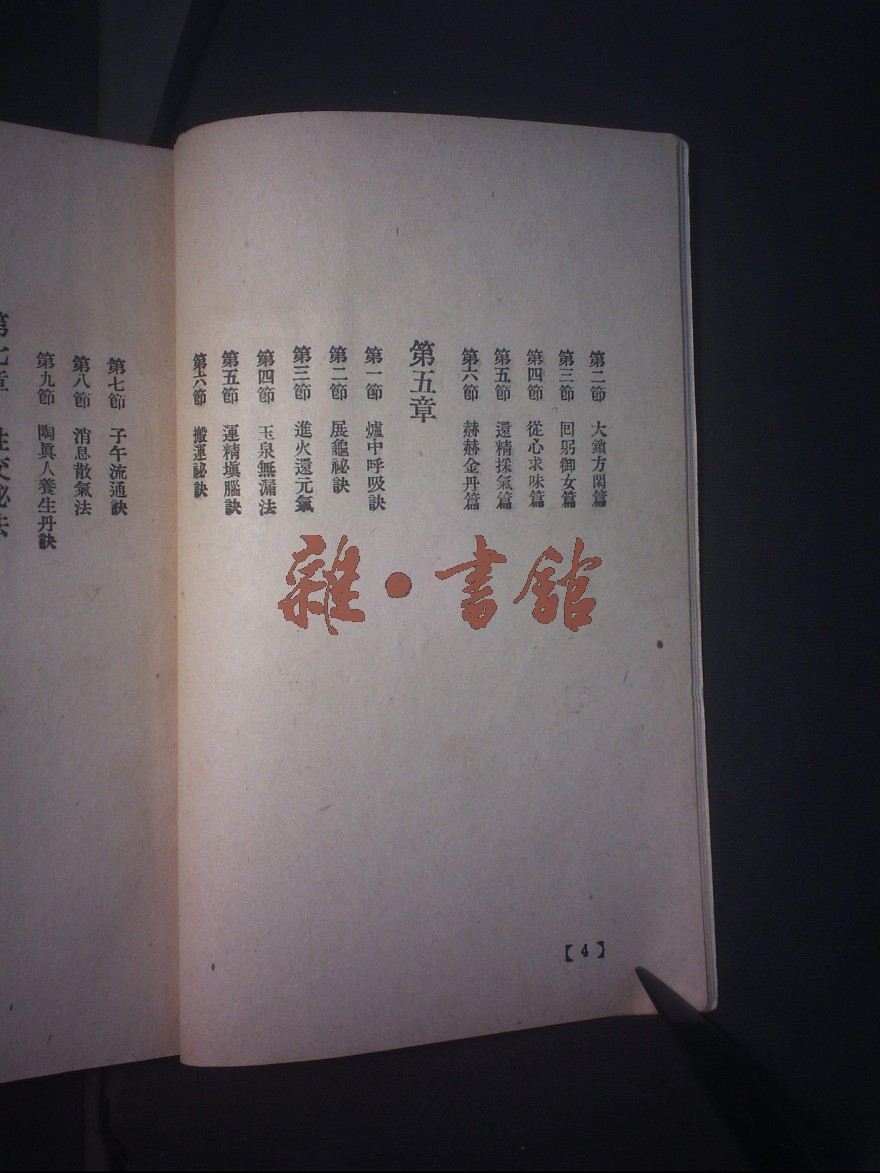 第二節　大鎖方閑篇
第三節　回躬御女篇
第四節　從心求味篇
第五節　還精採氣篇
第六節　赫赫金丹篇
第五章
第一節　爐中呼吸訣
第二節　展龜祕訣
第三節　進火還元氣
第四節　玉泉無漏法
第五節　運精塡腦訣
第六節　搬運祕訣
【4】
第七節　子午流通訣
第八節　消息散氣法
第九節　陶眞人養生丹訣
第七章　性交祕法
雜・書館